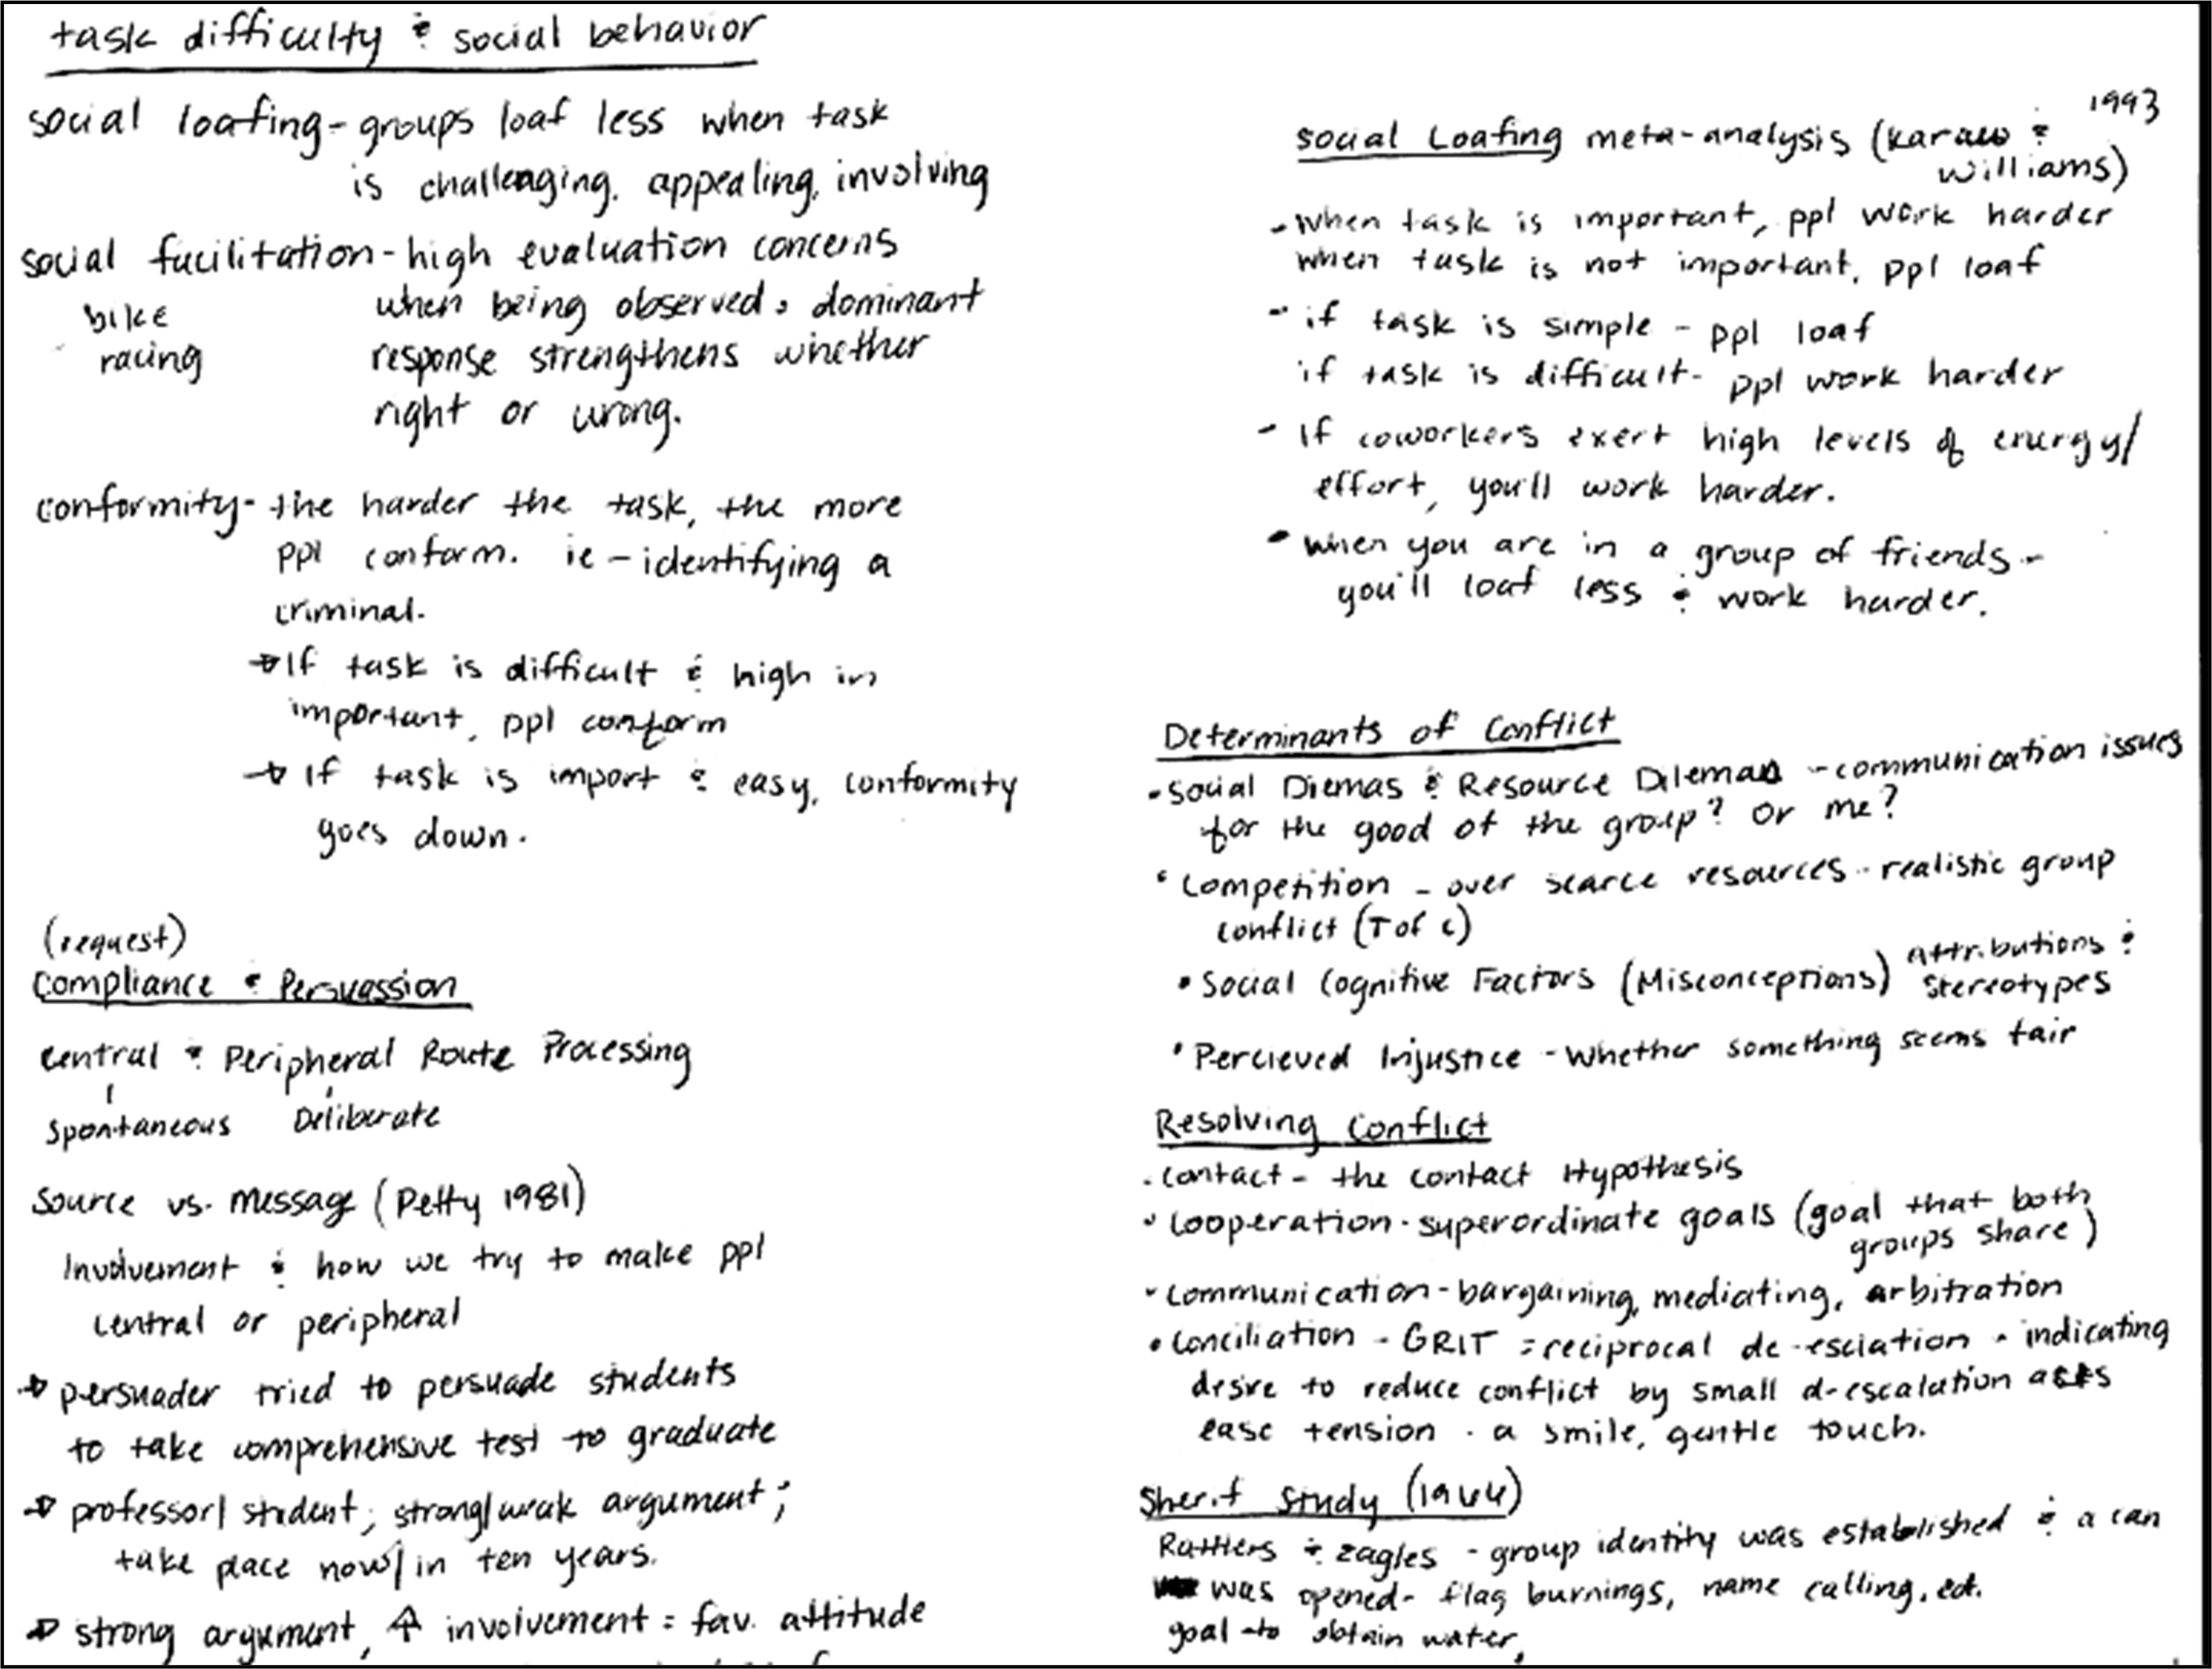 task difficulty & social behavior
social loafing - groups loaf less when task
is challenging, appealing, involving
social facilitation - high evaluation concerns
when being observed, dominant
bike
response strengthens whether
racing
right or wrong.
conformity - the harder the task, the more
ppl conform. ie - identifying a
criminal.
→ If task is difficult & high in
important, ppl conform
→ If task is import & easy, conformity
goes down.
(request)
Compliance & Persuassion
Central & Peripheral Route Processing
Spontaneous Deliberate
Source vs. Message (Petty 1981)
Involvement & how we try to make ppl
central or peripheral
→ persuader tried to persuade students
to take comprehensive test to graduate
→ professor/student; strong/weak argument;
take place now/in ten years.
→ strong argument, ↑ involvement = fav. attitude
1993
Social Loafing meta-analysis (Karau &
Williams)
- When task is important, ppl work harder
when task is not important, ppl loaf
- if task is simple - ppl loaf
if task is difficult - ppl work harder
- If coworkers exert high levels of energy/
effort, you'll work harder.
- when you are in a group of friends -
you'll loaf less & work harder.
Determinants of Conflict
• Social Diemas & Resource Dilemas - communication issues
for the good of the group? Or me?
• Competition - over scarce resources - realistic group
conflict (T of C)
• Social Cognitive Factors (Misconceptions) attributions &
stereotypes
• Percieved Injustice - whether something seems fair
Resolving Conflict
• Contact - the contact Hypothesis
• Cooperation - superordinate goals (goal that both
groups share)
• Communication - bargaining, mediating, arbitration
• Conciliation - GRIT = reciprocal de-esclation - indicating
desire to reduce conflict by small d-escalation acts
ease tension - a smile, gentle touch.
Sherif Study (1966)
Rattlers & Eagles - group identity was established & a can
was opened - flag burnings, name calling, ect.
goal to obtain water,